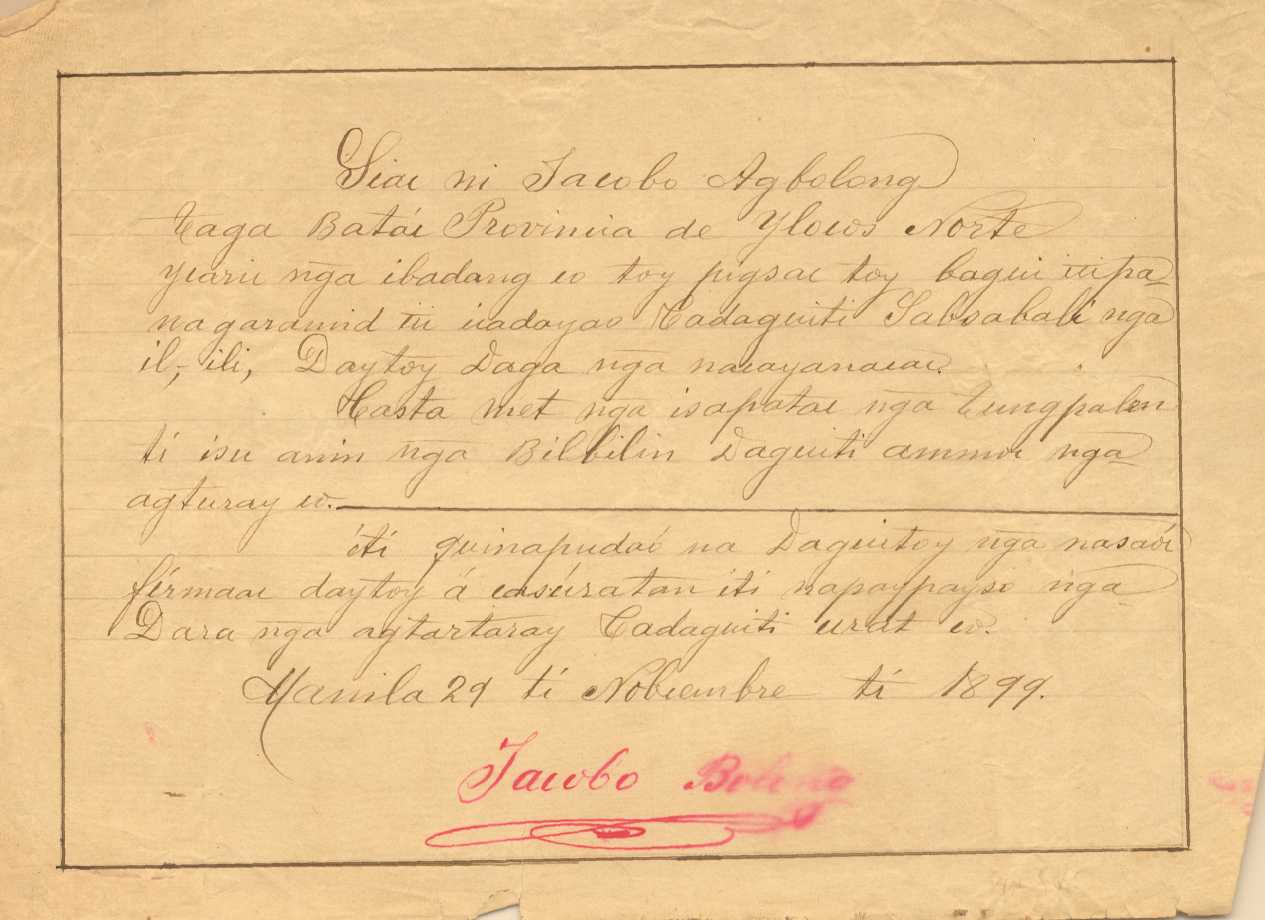 Siac ni Jacobo Agbolong
taga Batác Provincia de Ylocos Norte
ycaric nga ibadang co toy pigsac toy bagui iti pa-
nagaramid iti uadayas Cadaguiti Sabsabali nga
il, ili, Daytoy Daga nga nacayanacac.
Casta met nga isapatac nga tungpalen
ti isu amin nga Bilbilin Daguiti ammoc nga
agturay co.
iti guinapudac na Daguitoy nga nasaoc
firmaac daytoy á casúratan iti napaypayso nga
Dara nga agtartaray Cadaguiti urat co.
Manila 29 ti Nobiembre ti 1899.
Jacobo Bolong